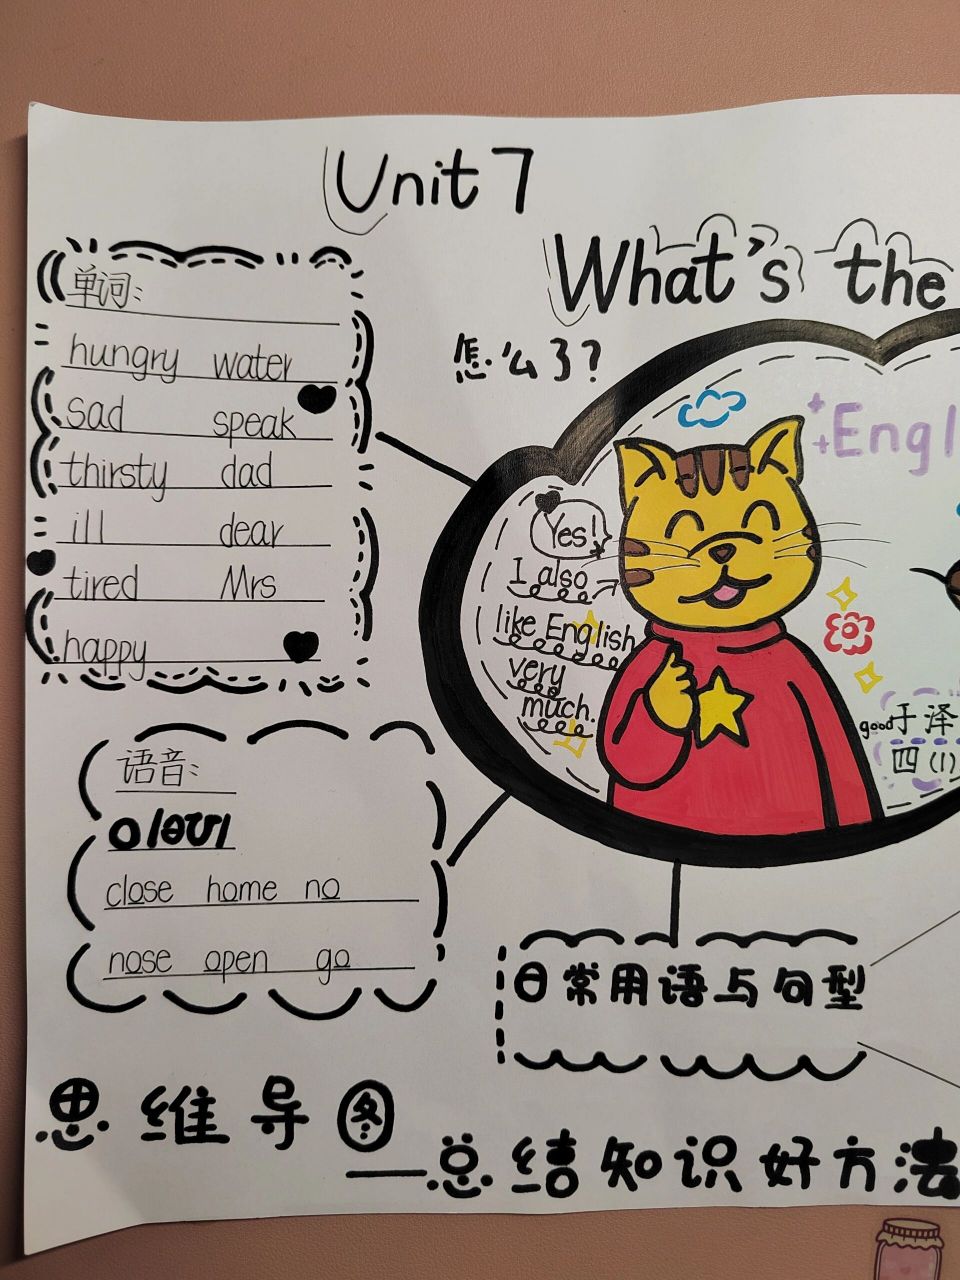 Unit 7
What's the
怎么了?
单词:
hungry water
sad speak
thirsty dad
ill dear
tired Mrs
happy
Yes!
I also
like English
very
much.
Engl
good于泽
四(1)
语音:
o/əʊ/
close home no
nose open go
日常用语与句型
思维导图
——总结知识好方法